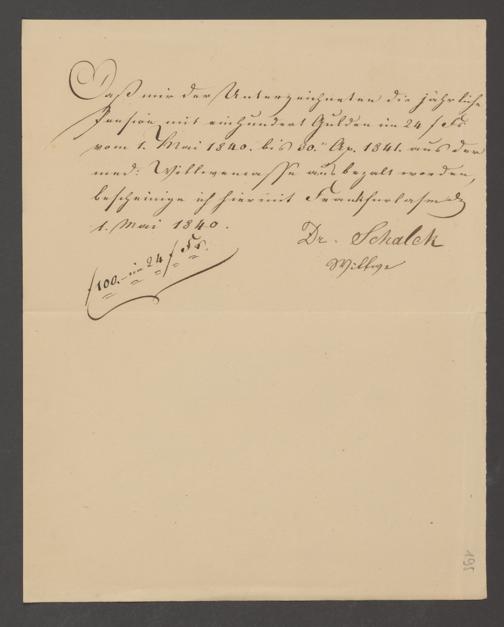 Daß mir der Unterzeichneten die jährliche
Pension mit einhundert Gulden im 24 f Fs.
vom 1. Mai 1840. bis 30. Ap. 1841. aus der
med: Wittwencasse ausbezalt worden,
bescheinige ich hiermit Frankfurt
1. Mai 1840.
Dr. Schalck
Wittwe
f 100. im 24 f Fs.
195